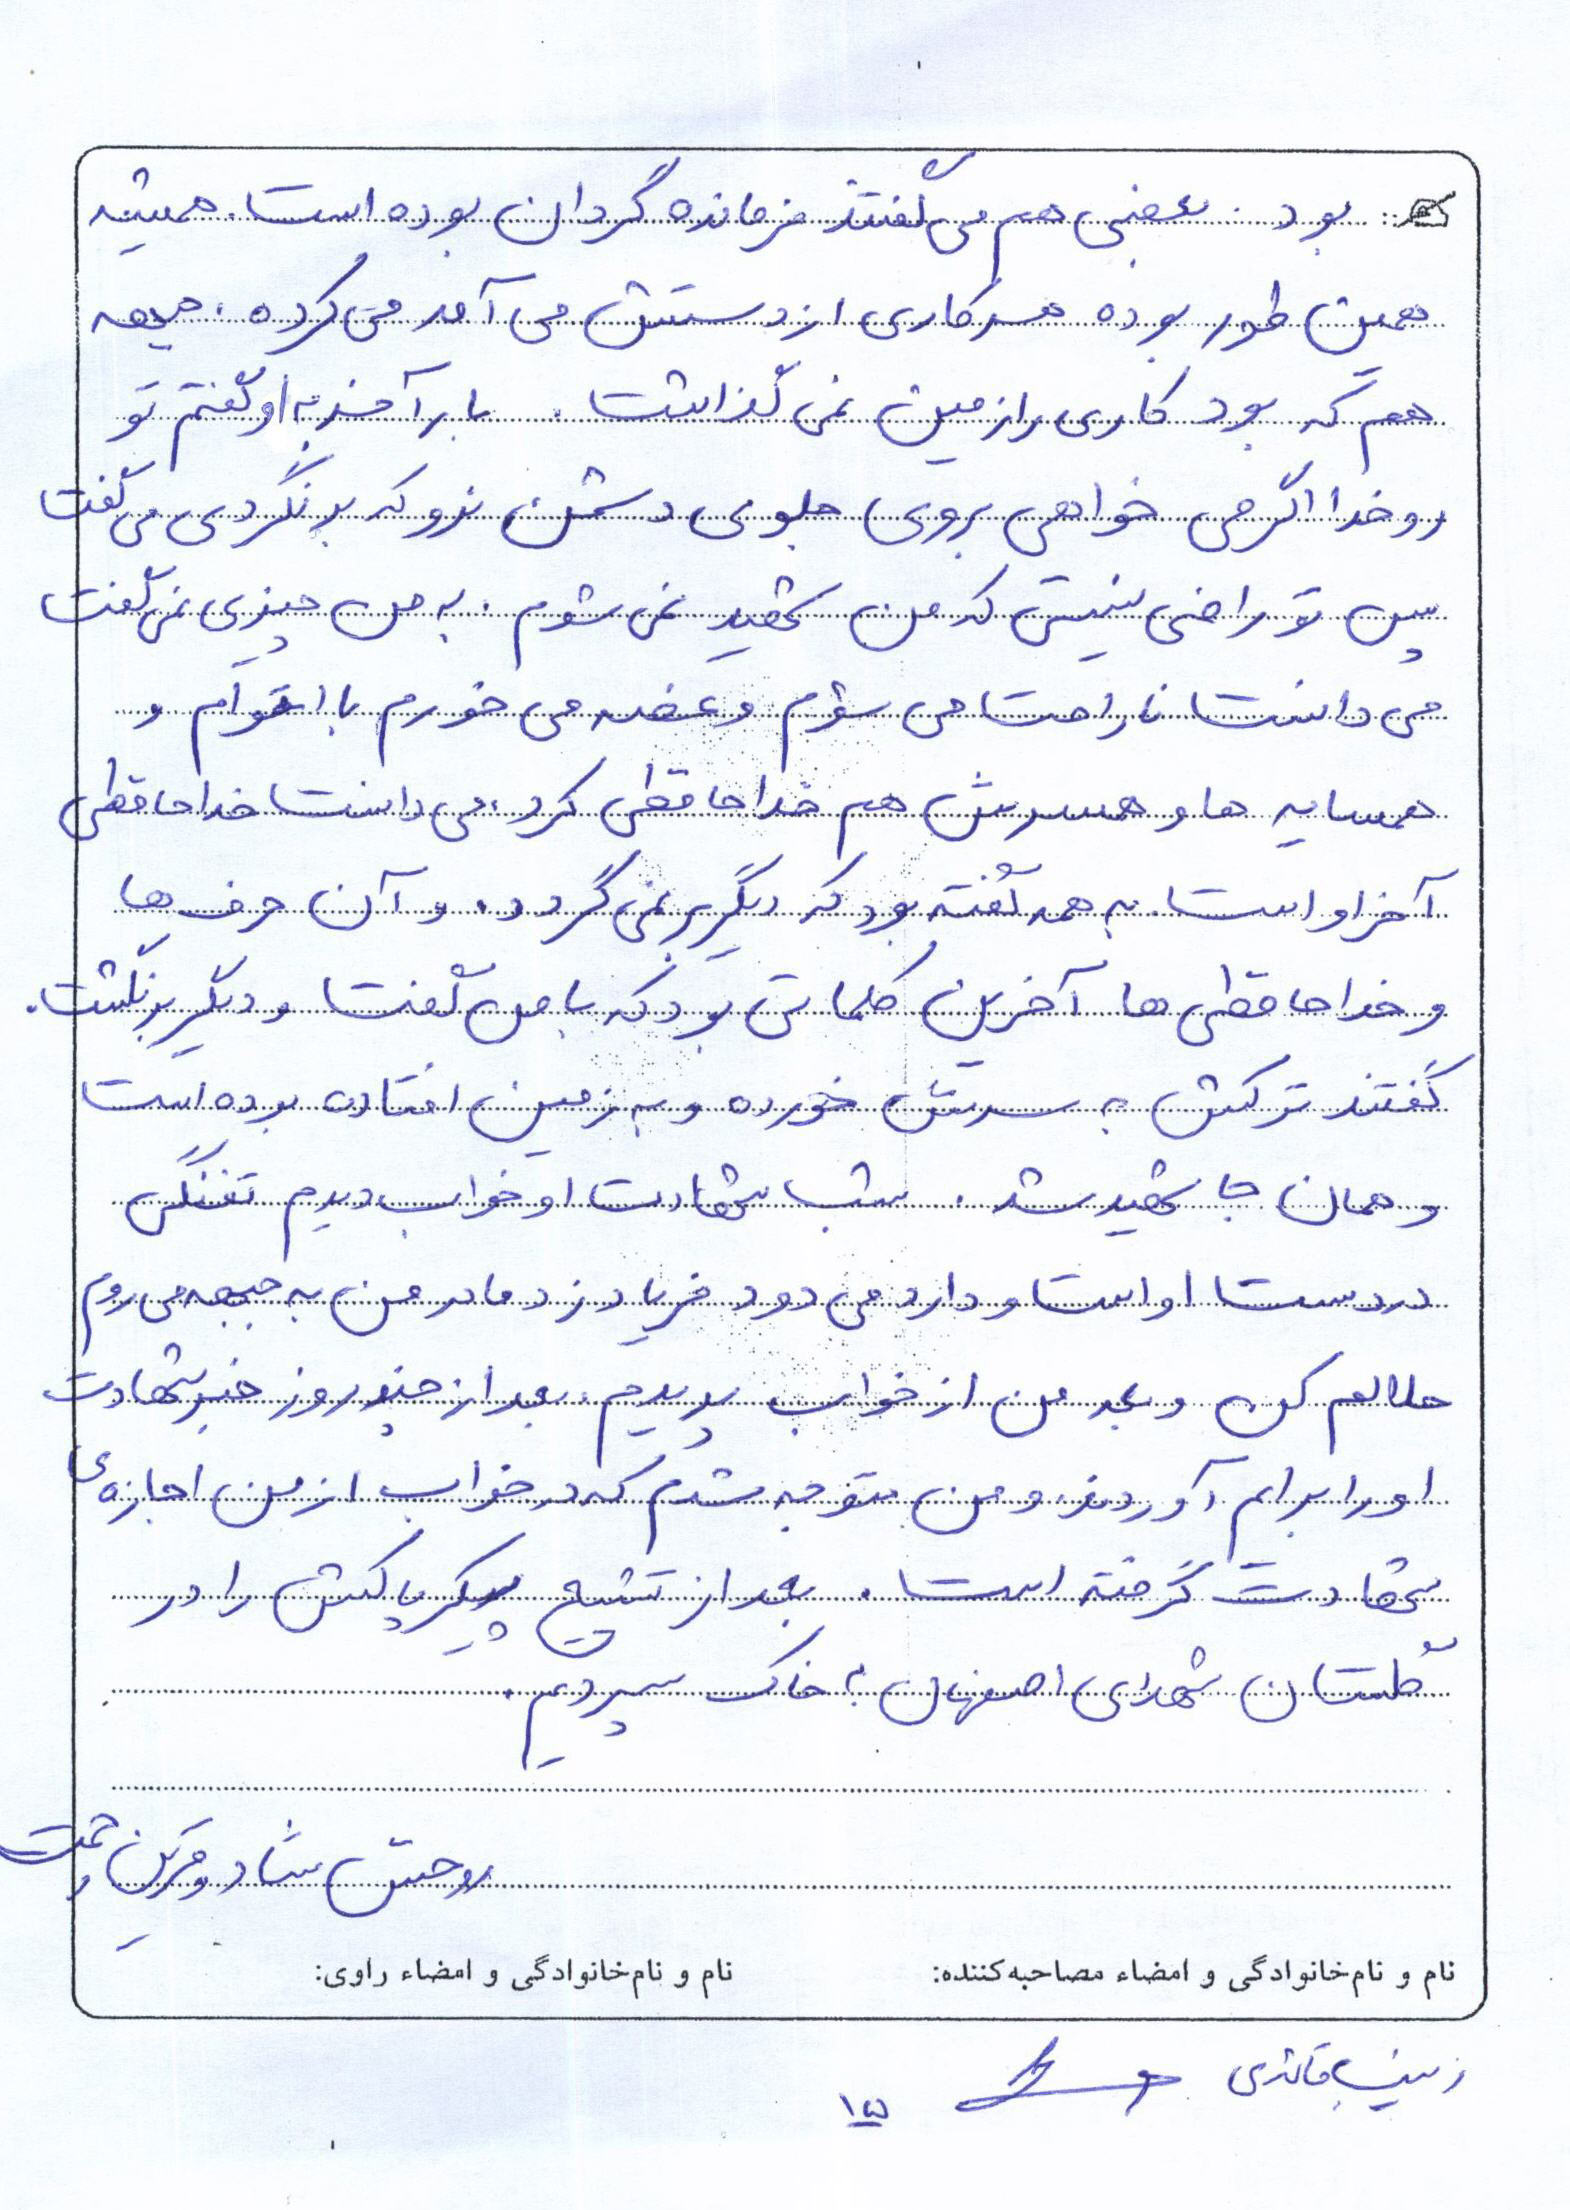 بود. بعضی هم می گفتند فرمانده گردان بوده است. همیشه
همین طور بوده هر کاری از دستش می آمد می کرده. جبهه
هم که بود کاری را زمین نمی گذاشت. بار آخر به او گفتم تو
رو خدا اگر می خواهی بروی جلوی دشمن نرو که برنگردی می گفت
پس تو راضی نیستی که من شهید نمی شوم. به من چیزی نمی گفت
می دانست ناراحت می شوم و غصه می خورم با اقوام و
همسایه ها و همسرش هم خداحافظی کرد، می دانست خداحافظی
آخر او است. به همه گفته بود که دیگر برنمی گردد. و آن حرف ها
و خداحافظی ها آخرین کلماتی بود که با من گفت و دیگر برنگشت.
گفتند ترکش به سرش خورده و به زمین افتاده بوده است
و همان جا شهید شد. شب شهادت او خواب دیدم تفنگی
در دست او است و دارد می دود فریاد زد مادر من به جبهه می روم
حلالم کن و بعد من از خواب پریدم. بعد از چند روز خبر شهادت
او را برایم آوردند. و من متوجه شدم که در خواب از من اجازه ی
شهادت گرفته است. بعد از تشیع پیکر پاکش را در
گلستان شهدای اصفهان به خاک سپردیم.
روحش شاد و قرین رحمت
نام و نام‌خانوادگی و امضاء مصاحبه‌کننده:
نام و نام‌خانوادگی و امضاء راوی:
زینب قائدی
۱۵